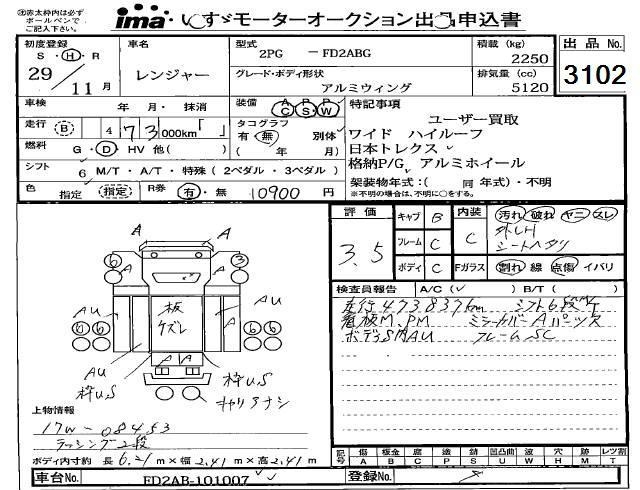 ima いすゞモーターオークション出品申込書
初度登録 車名 型式 積載 (kg) 出品No.
S・H・R 2PG - FD2ABG 2250
29年11月 レンジャー グレード・ボディ形状 排気量 (cc) 3102
アルミウィング 5120
車検 年 月・抹消 装備 AC PS PW 特記事項
走行 (B) 473 000km「 」 タコグラフ ユーザー買取
有・無 別体 ワイド ハイルーフ
燃料 G・D・HV 他( ) ( 年 月) 日本トレクス
シフト 6 M/T・A/T・特殊(2ペダル・3ペダル) 格納P/G アルミホイール
架装物年式:( 同 年式)・不明
色 指定 (指定) R券 有・無 10900 円 ※不明の場合は、不明に○をする。
評価 キャブ B 内装 汚れ 破れ ヤニ スレ
3.5 フレーム C C
シートヘタリ
ボディ C Fガラス 割れ 線 点傷 イバリ
検査員報告 A/C( ) B/T( )
走行473837km シフト6段M/T
看板M.PM ミラーカバーAパーツズ
ボデ S内AU フレームSC
A A
6 3
A A
AU 板 A AU
ケズレ
6 6 6 6
A A
AU
枠U.S 枠U.S
キャリアナシ
上物情報
17W-08453
ラッシング2段
ボディ内寸約 長 6.21 m × 幅 2.41 m × 高 2.41 m
記号 傷 板金 腐 錆 凹凸曲 波 穴 跡 レツ割
車台No. FD2AB-101007 登録No.